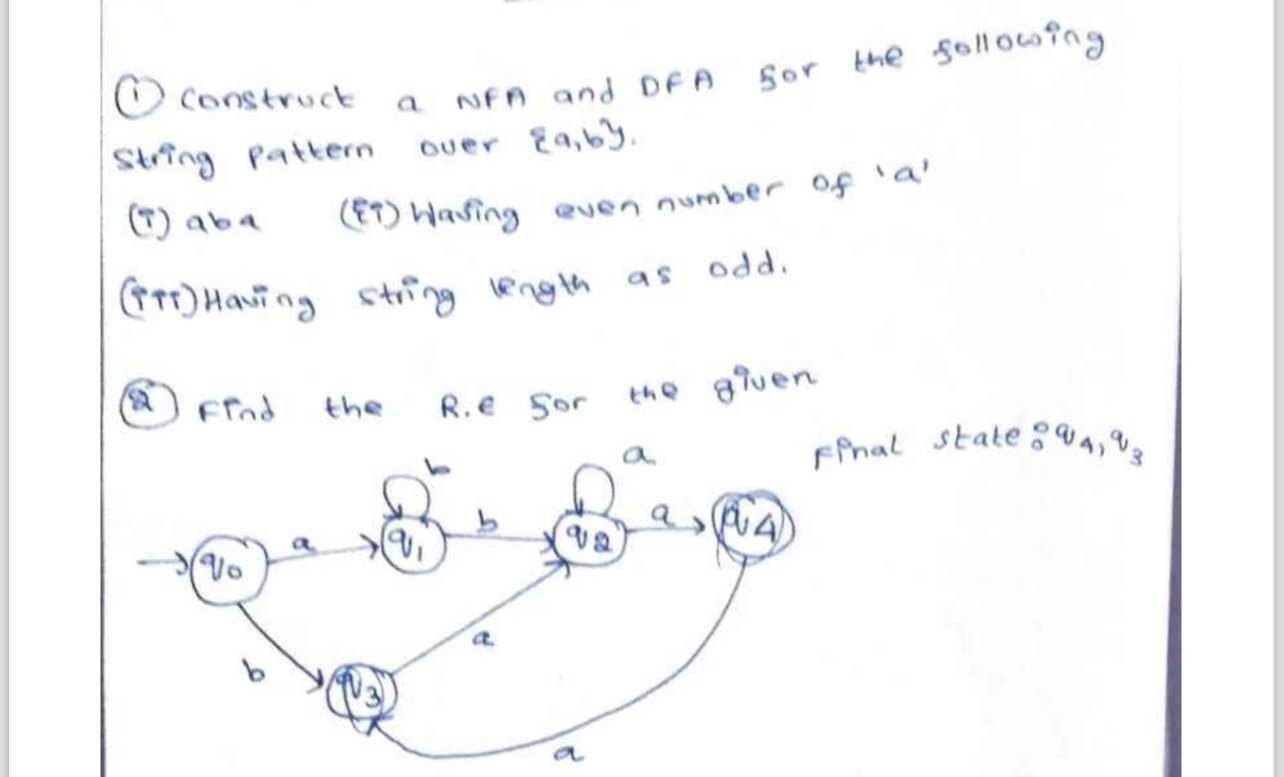 ① Construct a NFA and DFA for the following
String pattern over {a,b}.
(i) aba (ii) Having even number of 'a'
(iii) Having string length as odd.
② Find the R.E for the given
Final state: q4, q3
b
a
q0 a q1 b q2 a q4
a
b
q3
a